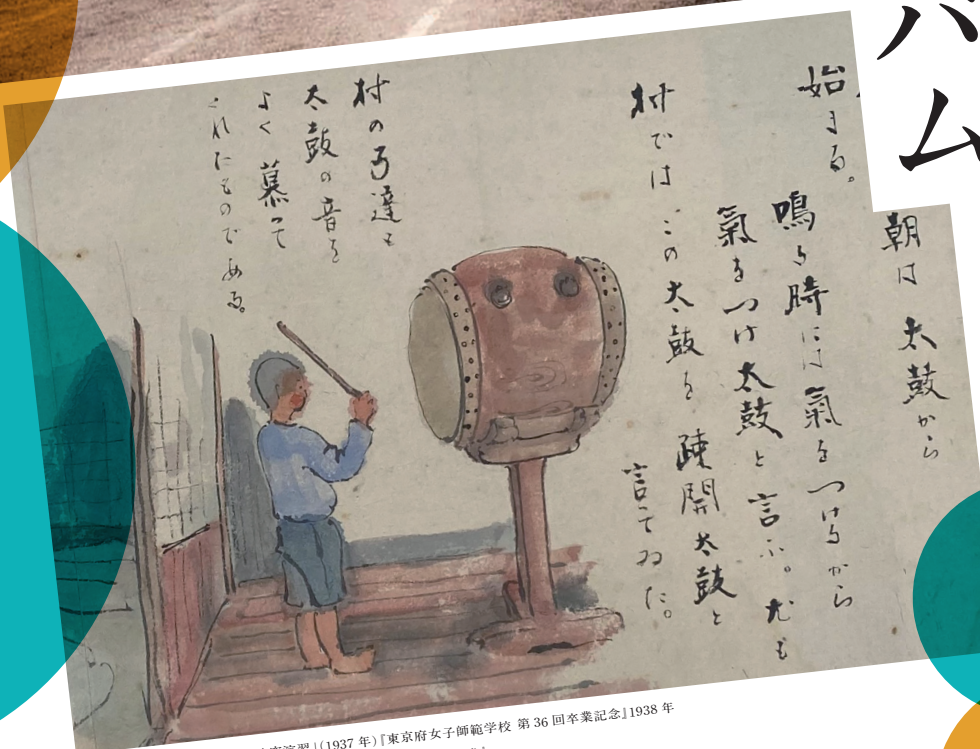 バム
朝は太鼓から
始まる。
鳴る時には氣をつけるから
氣をつけ太鼓と言ふ。尤も
村ではこの太鼓を疎開太鼓と
言てゐた。
村の子達も
太鼓の音を
よく慕って
くれたものである。
演習」(1937年)『東京府女子師範学校 第36回卒業記念』1938年